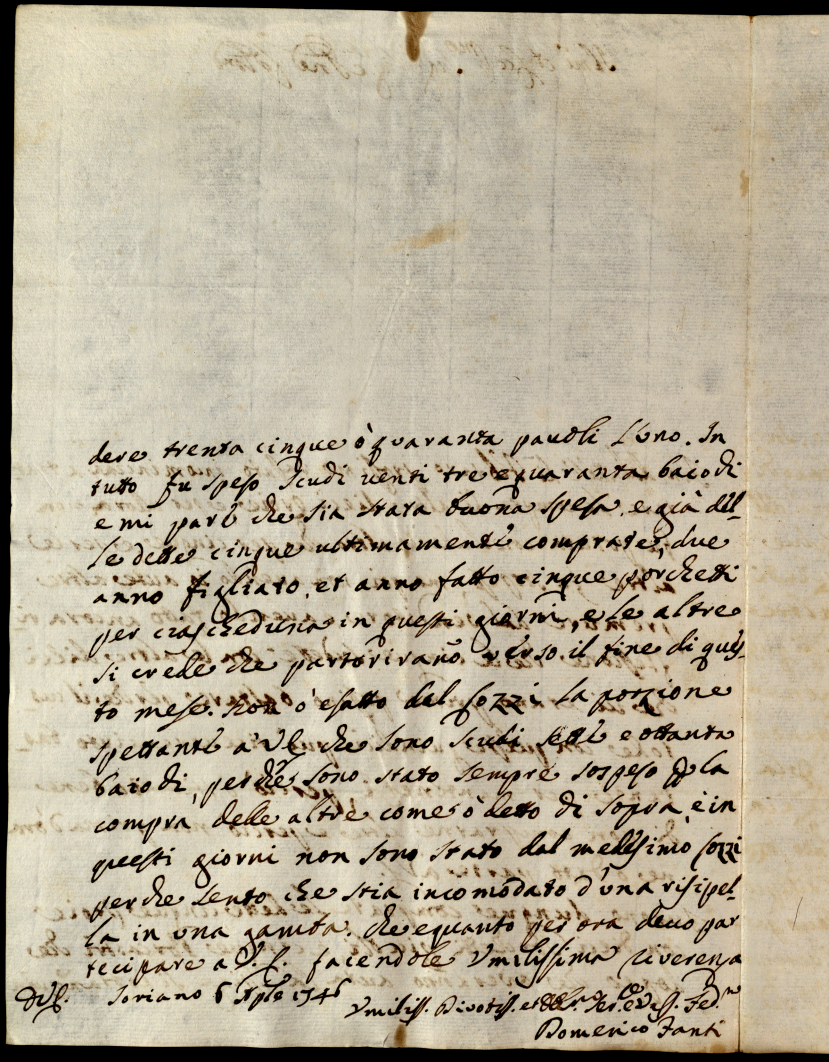 dere trenta cinque ò quaranta pauoli l'uno. In
tutto fu speso Scudi uenti tre e quaranta baiochi
e mi pare che sia stata buona spesa, e già del-
le dette cinque ultimamente comprate, due
anno figliato, et anno fatto cinque porchetti
per ciascheduna in questi giorni, e le altre
si crede che partorirano verso il fine di ques-
to mese. Non ò esatto dal Cozzi la porzione
spettante a Vs. che sono scudi sette e ottanta
baiochi, perche sono stato sempre sospeso p la
compra delle altre come ò detto di sopra, è in
questi giorni non sono stato dal medesimo Cozzi
perche sento che stia incomodato d'una risipel-
la in una gamba. Che e quanto per ora deuo par
tecipare a V. S. facendole Vmilissima riverenza
Di Vs. Soriano 6 Aple 1746
Vmiliss. Divotiss. et
Domenico Fanti